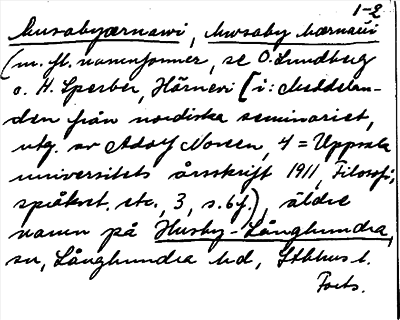 1-2
husabyærnawi, hwsaby hærnaui
(m. fl. namnformer, se O. Lundberg
o. H. Sperber, Härnevi [i: Meddelan-
den från nordiska seminariet,
utg. av Adolf Noreen, 4 = Uppsala
universitets årsskrift 1911, Filosofi,
språkvet. etc., 3, s. 6 f.), äldre
namn på Husby-Långhundra,
sn, Långhundra hd, Sthlms l.
Forts.